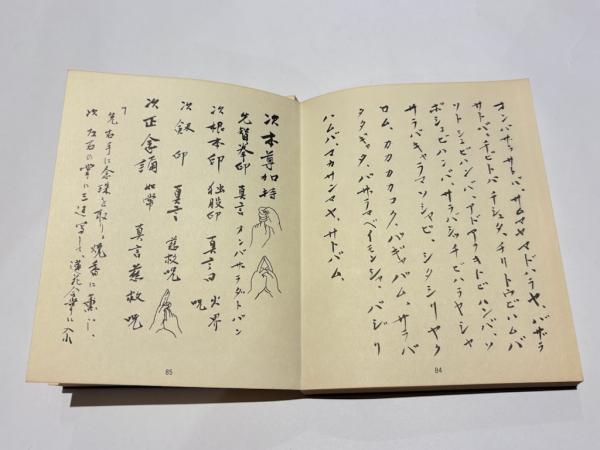 オンバザラサトバ、サムマヤマドハラヤ、バザラ
サトバ、チビトバ、チシュタ、チリトウビハムバ
ソトシュビハンバ、アドアラキトビハンバ、ソ
ボシュビハンバ、サラバシッチビハラヤシャ
サラバキャラマソシャビ、シタシリヤク
ロム、カカカカコク、バギャバム、サラバ
タタギャタ、バサラマベイモンシャ、バジリ
ハムバ、マカサンマヤ、サトバム、
84
次本尊加持
先智拳印 真言 オンバサラダトバン
次根本印 独股印 真言曰 火界呪
次剣印 真言 慈救呪
次正念誦 如常 真言慈救呪
先右手に念珠を取り、焼香に薫じ、
次左右の掌に三遍写して、蓮花合掌に入
85